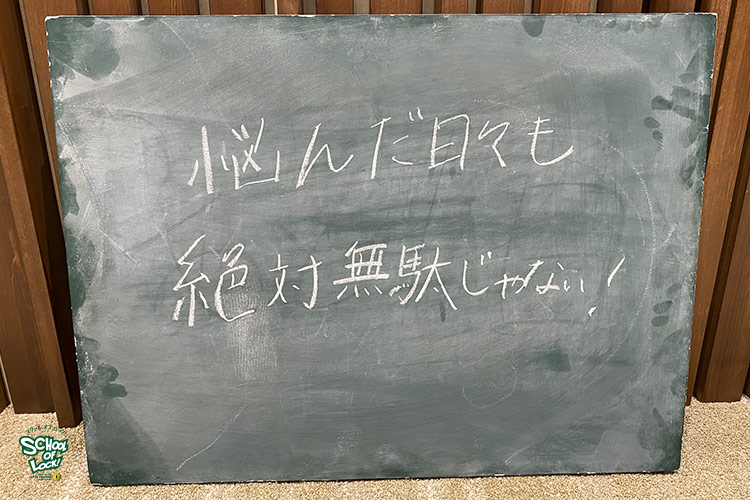 悩んだ日々も
絶対無駄じゃない!
SCHOOL
OF
LOCK!